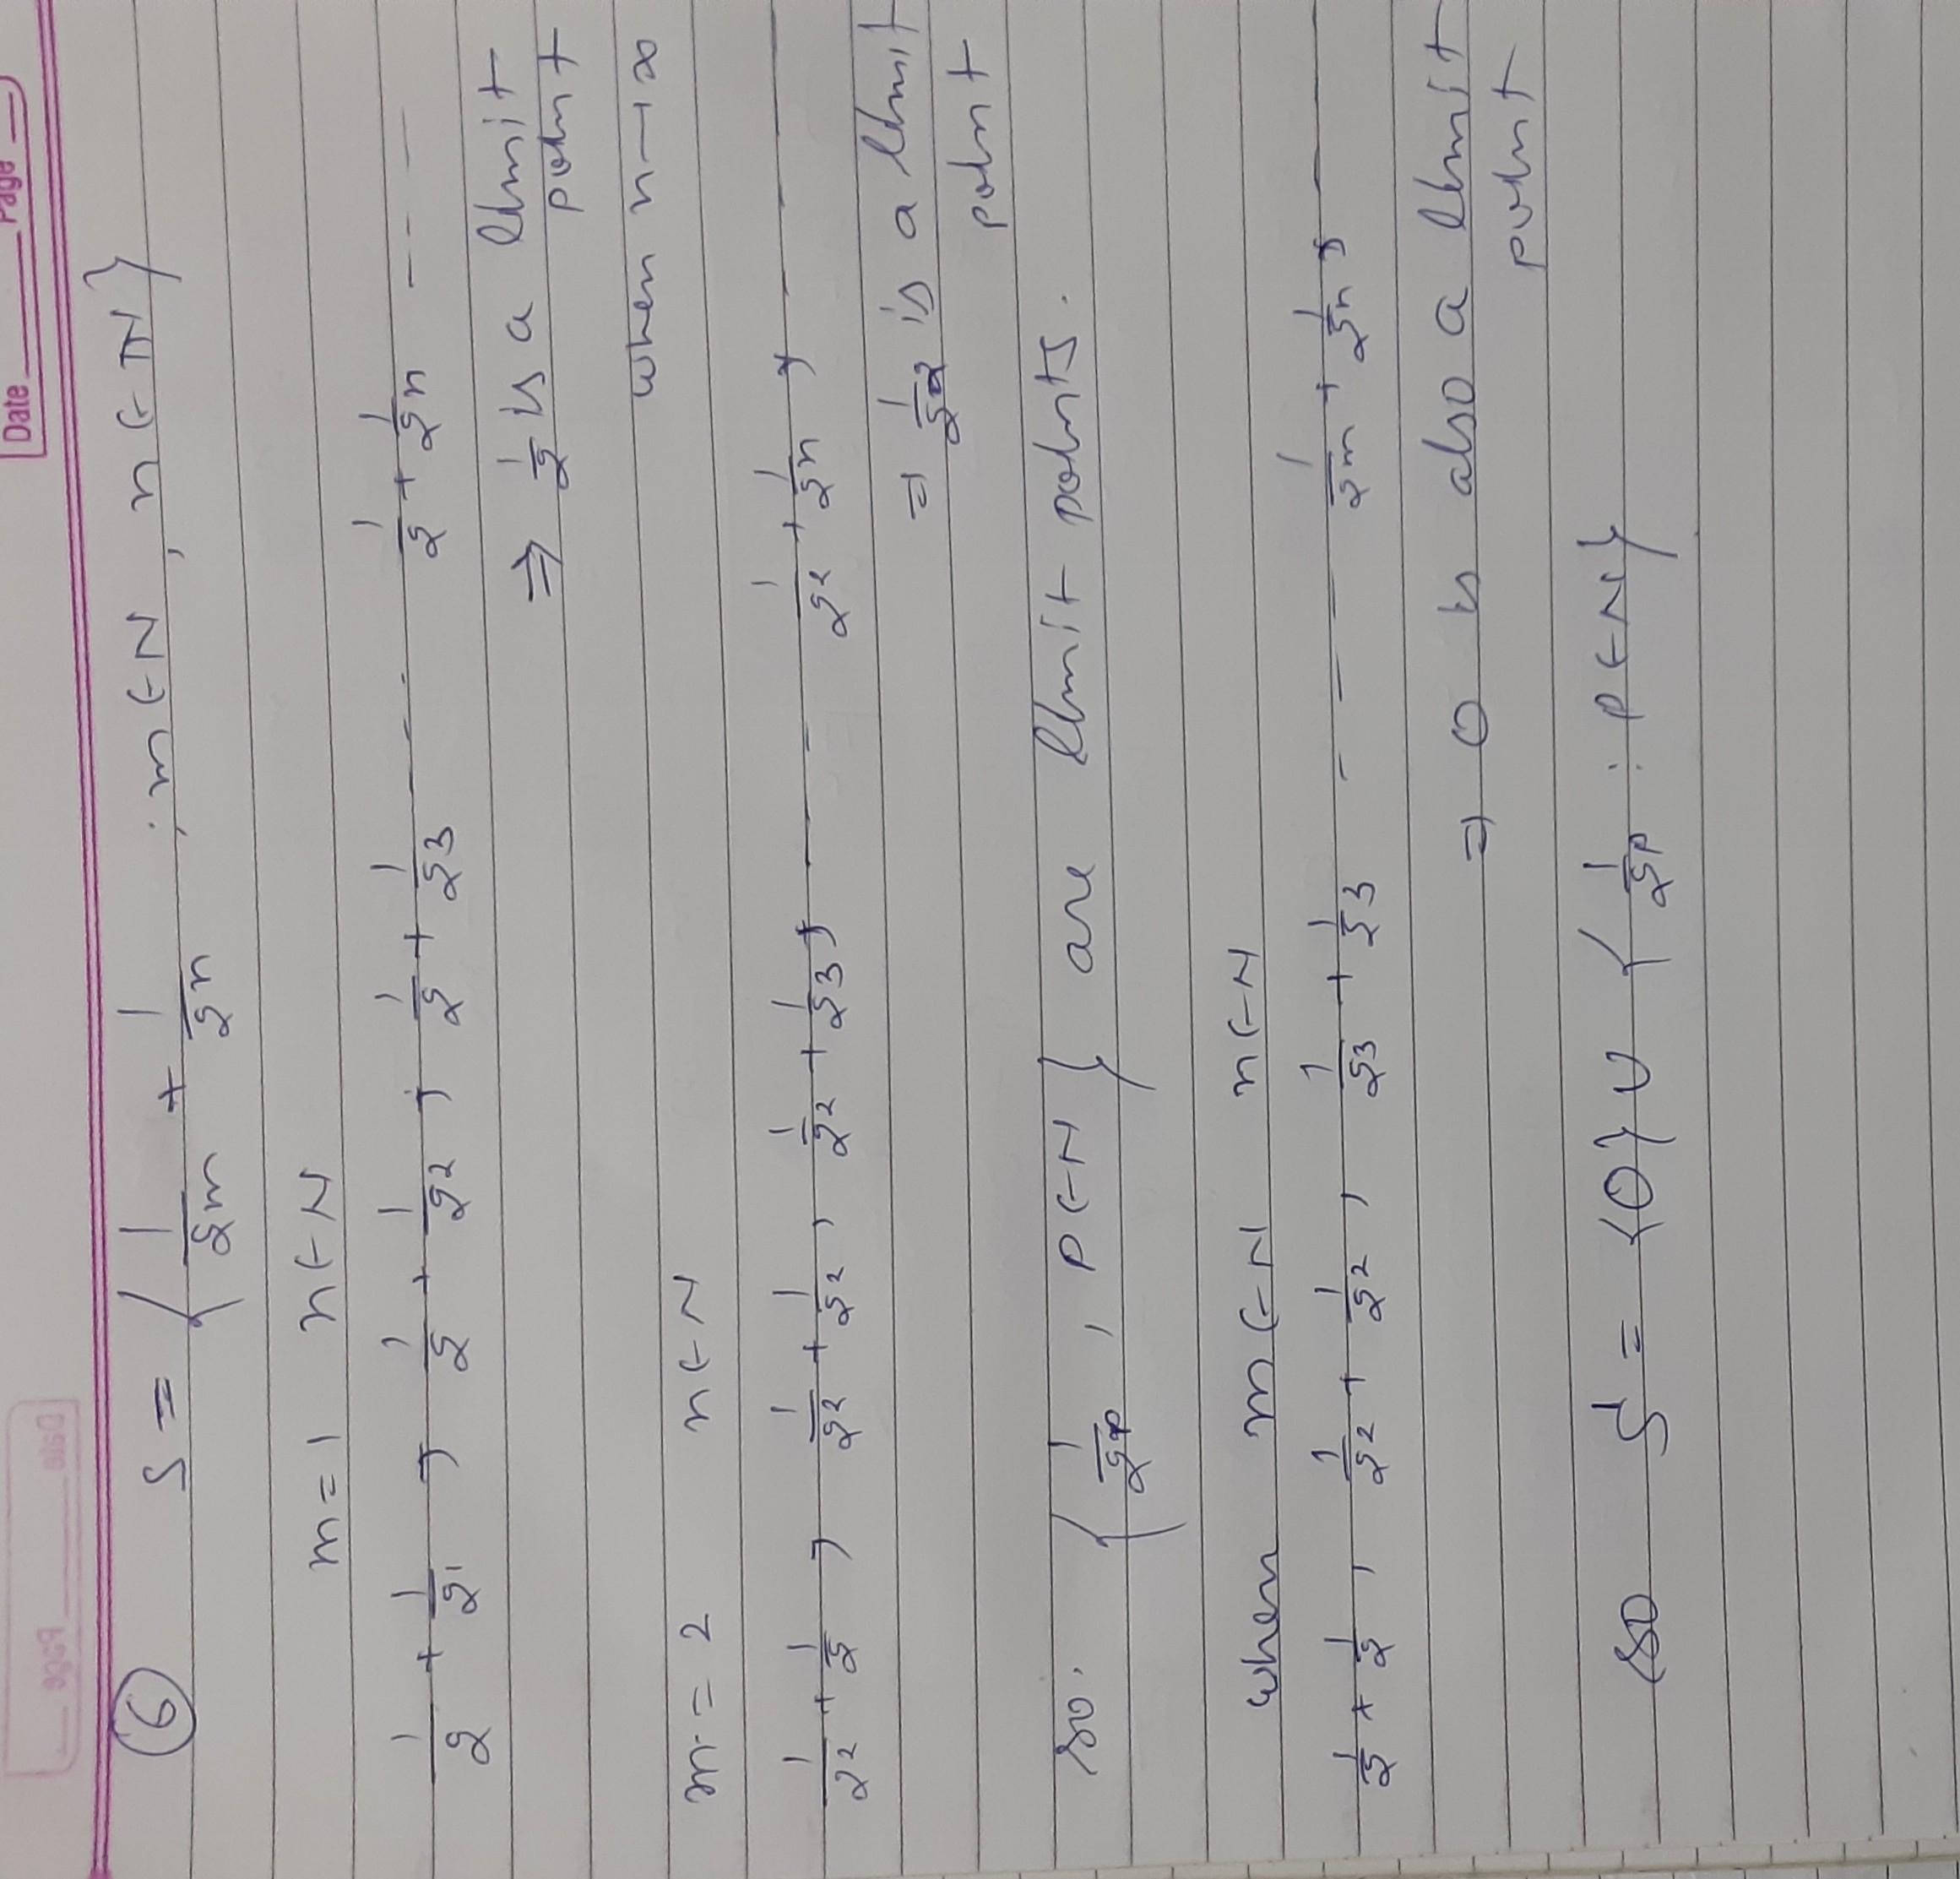 Date ______ Page ___
⑥ S = { 1/2^m + 1/2^n ; m ∈ N, n ∈ N }
m = 1 n ∈ N
1/2 + 1/2^1 , 1/2 + 1/2^2 , 1/2 + 1/2^3 - - - 1/2 + 1/2^n - - - -
⇒ 1/2 is a limit
point
when n → ∞
m = 2 n ∈ N
1/2^2 + 1/2 , 1/2^2 + 1/2^2 , 1/2^2 + 1/2^3 , - - 1/2^2 + 1/2^n , - - -
⇒ 1/2^2 is a limit
point
so. { 1/2^p , p ∈ N } are limit points.
when m ∈ N n ∈ N
1/2 + 1/2 , 1/2^2 + 1/2^2 , 1/2^3 + 1/2^3 - - - - 1/2^m + 1/2^n , - -
⇒ 0 is also a limit
point
so S' = {0} ∪ { 1/2^p : p ∈ N }